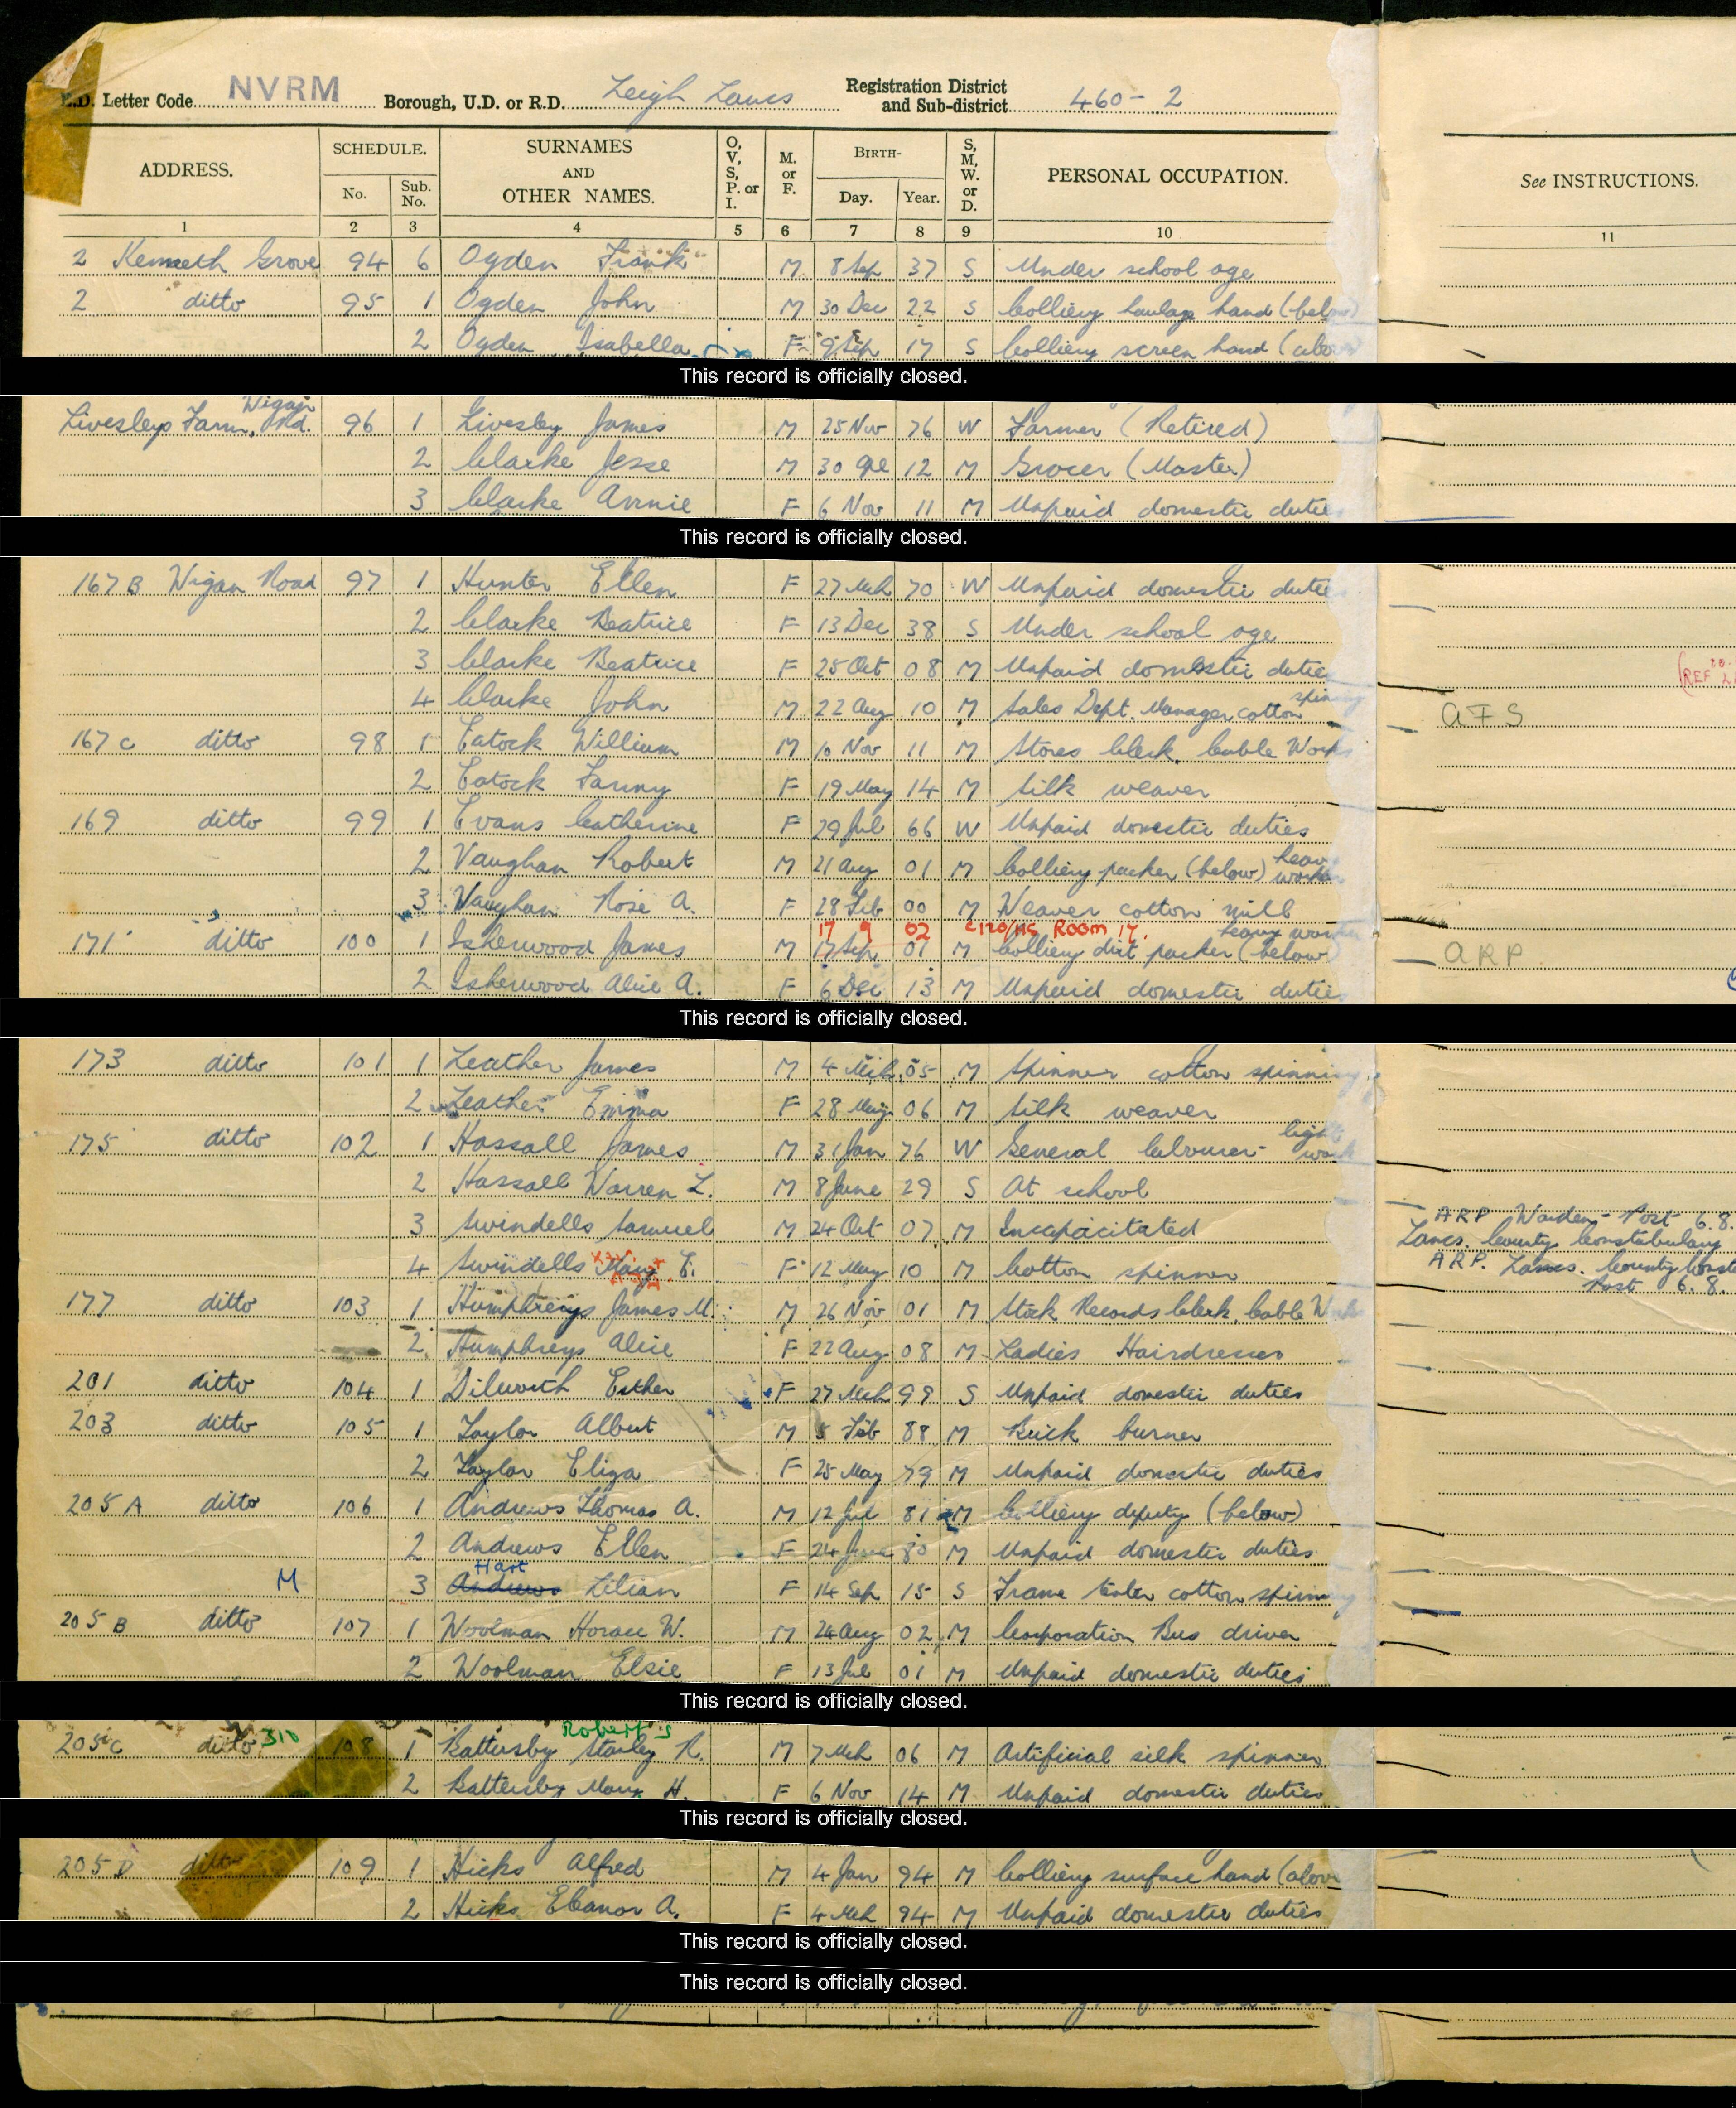 E.D. Letter Code NVRM Borough, U.D. or R.D. Leigh Lancs Registration District and Sub-district 460-2
ADDRESS. SCHEDULE. No. Sub. No. SURNAMES AND OTHER NAMES. O, V, S, P. or I. M. or F. BIRTH- Day. Year. S, M, W. or D. PERSONAL OCCUPATION. See INSTRUCTIONS.
1 2 3 4 5 6 7 8 9 10 11
2 Kenneth Grove 94 6 Ogden Frank M 8 Sep 37 S Under school age
2 ditto 95 1 Ogden John M 30 Dec 22 S Colliery haulage hand (below)
2 Ogden Isabella F 9 Sep 17 S Colliery screen hand (above)
This record is officially closed.
Livesleys Farm, Wigan Rd. 96 1 Livesley James M 25 Nov 76 W Farmer (Retired)
2 Clarke Jesse M 30 Ape 12 M Grocer (Master)
3 Clarke Annie F 6 Nov 11 M Unpaid domestic duties
This record is officially closed.
167 B Wigan Road 97 1 Hunter Ellen F 27 Mch 70 W Unpaid domestic duties
2 Clarke Beatrice F 13 Dec 38 S Under school age
3 Clarke Beatrice F 25 Oct 08 M Unpaid domestic duties (REF
4 Clarke John M 22 Aug 10 M Sales Dept. Manager cotton spinning AFS
167 C ditto 98 1 Eatock William M 10 Nov 11 M Stores Clerk. Cable Works
2 Eatock Fanny F 19 May 14 M Silk weaver
169 ditto 99 1 Evans Catherine F 29 Jul 66 W Unpaid domestic duties
2 Vaughan Robert M 21 Aug 01 M Colliery packer (below) heavy worker
3 Vaughan Rose A. F 28 Feb 00 M Weaver cotton mill
17 9 02 Room 17.
171 ditto 100 1 Isherwood James M 17 Sep 01 M Colliery dirt packer (below) heavy worker ARP
2 Isherwood Alice A. F 6 Dec 13 M Unpaid domestic duties
This record is officially closed.
173 ditto 101 1 Leather James M 4 Mch 05 M Spinner cotton spinning
2 Leather Emma F 28 May 06 M Silk weaver
175 ditto 102 1 Hassall James M 31 Jan 76 W General labourer light work
2 Hassall Warren L. M 8 June 29 S At school
3 Swindells Samuel M 24 Oct 07 M Incapacitated ARP Warden - Post 6.8.
Lancs. County Constabulary
4 Swindells Mary E. F 12 May 10 M Cotton spinner ARP. Lancs. County
Post 6.8.
177 ditto 103 1 Humphreys James M. M 26 Nov 01 M Stock Records Clerk, Cable Works
2 Humphreys Alice F 22 Aug 08 M Ladies Hairdresser
201 ditto 104 1 Dilworth Esther F 27 Mch 99 S Unpaid domestic duties
203 ditto 105 1 Taylor Albert M 5 Feb 88 M Brick burner
2 Taylor Eliza F 25 May 79 M Unpaid domestic duties
205 A ditto 106 1 Andrews Thomas A. M 12 Jul 81 M Colliery deputy (below)
2 Andrews Ellen F 24 June 80 M Unpaid domestic duties
Hart
M 3 Andrews Lilian F 14 Sep 15 S Frame tenter cotton spinning
205 B ditto 107 1 Woolman Horace W. M 24 Aug 02 M Corporation Bus driver
2 Woolman Elsie F 13 Jul 01 M Unpaid domestic duties
This record is officially closed.
Robert S
205 C ditto 310 108 1 Battersby Stanley R. M 7 Mch 06 M Artificial silk spinner
2 Battersby Mary H. F 6 Nov 14 M Unpaid domestic duties
This record is officially closed.
205 D ditto 109 1 Hicks Alfred M 4 Jan 94 M Colliery surface hand (above
2 Hicks Eleanor A. F 4 Mch 94 M Unpaid domestic duties
This record is officially closed.
This record is officially closed.